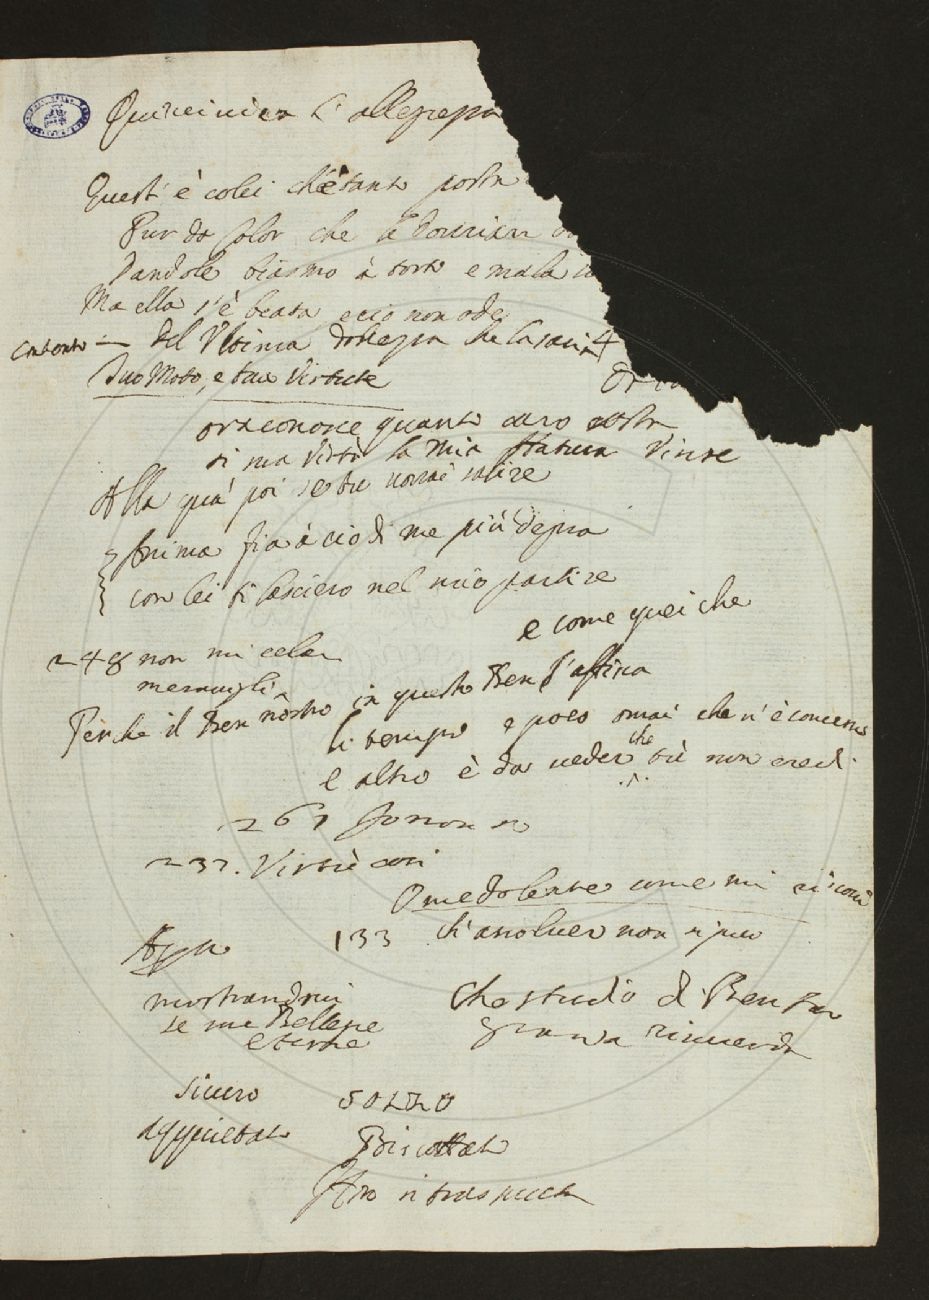 Qui rivivea l'allegrezza
Quest' è colei ch'è tanto posta
Pur da color che le dovrian
Dandole biasmo à torto e mala
Ma ella s'è beata e ciò non ode
Del Ultima dolcezza che la sazia 4
Suo Moto, e sua Virtute
ora conosce quanto caro costa
si ma Virtù la mia Natura Vinse
Alla qua' poi se tu vorrai salire
Anima fia à ciò di me più degna
con lei ti lasciero nel mio partire
e come quei che
248 non mi celar
meravigli
Perche il Ben nostro in questo Ben s'affina
li tempo e poco omai che n'è concesso
E altro è da veder che tù non vedi
267 Io non so
237. Virtù così
O me dolente come mi riscossi
133 Ch'assolver non si può
mostrandovi
le sue Bellezze
eterne
Che studio di Ben far
grazia rinverda
sicuro
SOLDO
acquietato
Biscottato